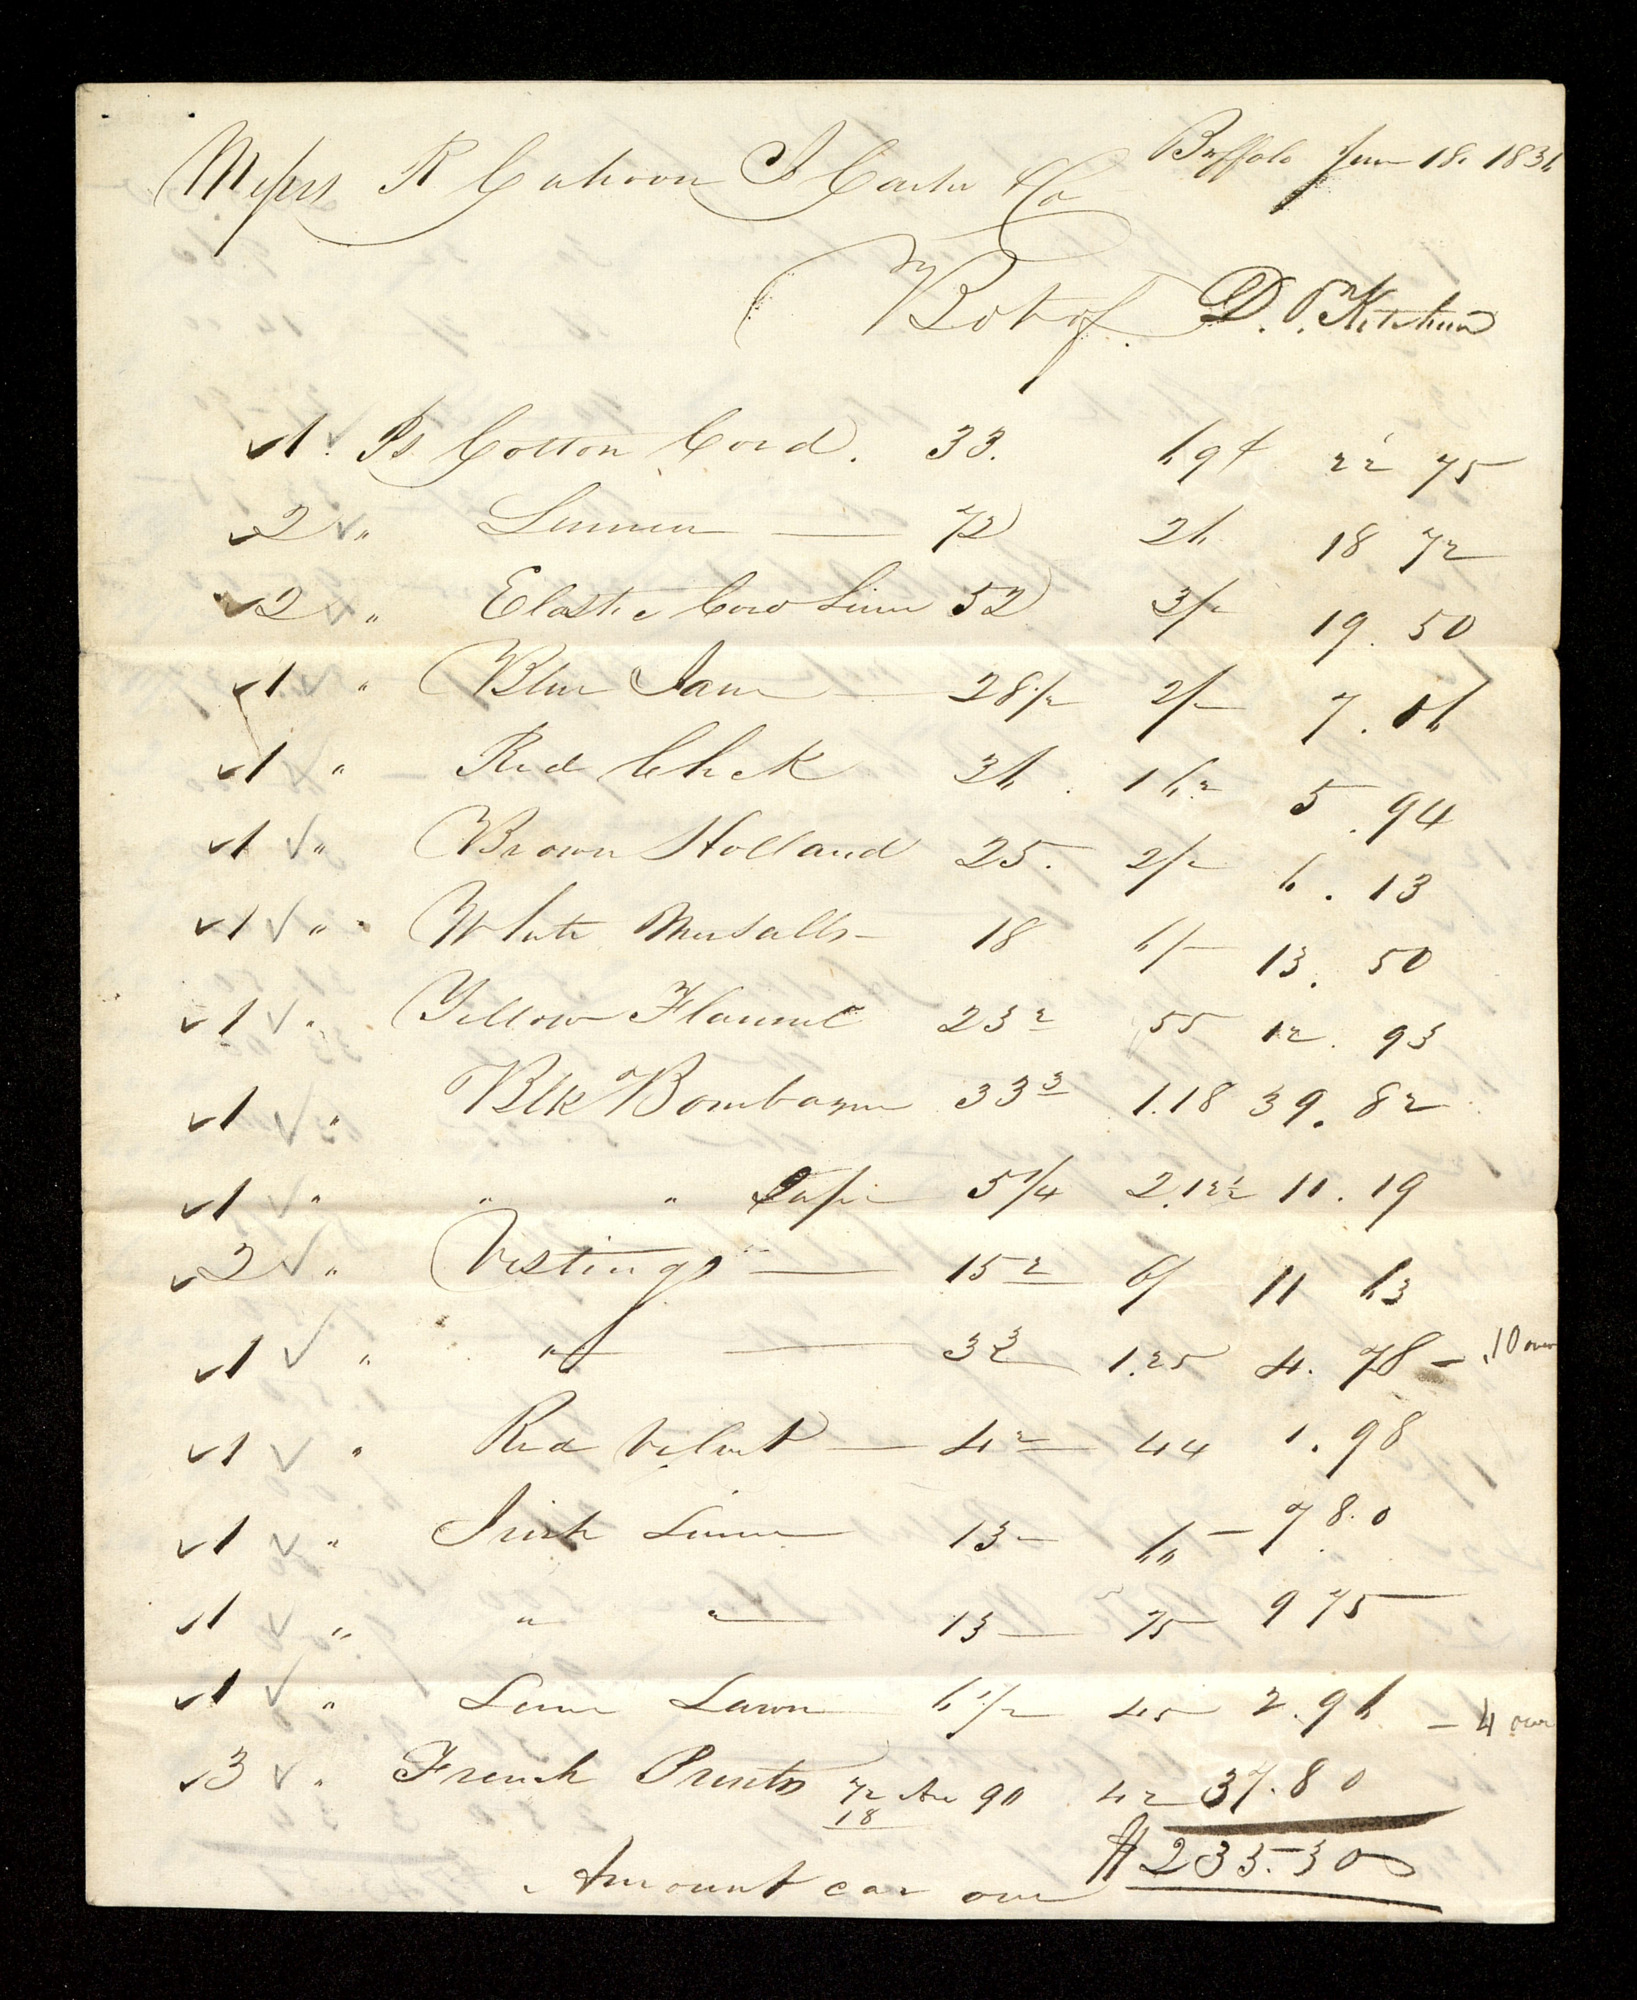 Buffalo June 18. 1836
Messrs R Cahoon J Carter & Co
Bot of D. P. Ketchum
1. Ps Cotton Cord. 33. 69¢ 22 75
2 " Linnen — 72 26 18 72
2 " Elastic Cord Linen 52 3/- 19. 50
1 " Blue Jane — 28 1/2 2/- 7. 06
1 " Red Check 36. 16 2 5. 94
1 " Brown Holland 25. 2/- 6. 13
1 " White Mersalls 18 6/- 13. 50
1 " Yellow Flannel 23 2 55 12. 93
1 " Blk Bombazine 33 3 1.18 39. 82
1 " " " 5 1/4 2.12 1/2 11. 19
2 " Vestings — 15 2 6/ 11 63
1 " " — 3 3 1.25 4. 78 – .10 over
1 " Red Velvet — 4 2 44 1. 98
1 " Irish Linen 13 – 6/ – 7 8.0
1 " " " — 13 — 75 9 75
1 " Linen Lawn 6 1/2 45 2. 96 – 4 over
3 " French Prints 72 90 42 37. 80
18
Amount car over $ 235.30